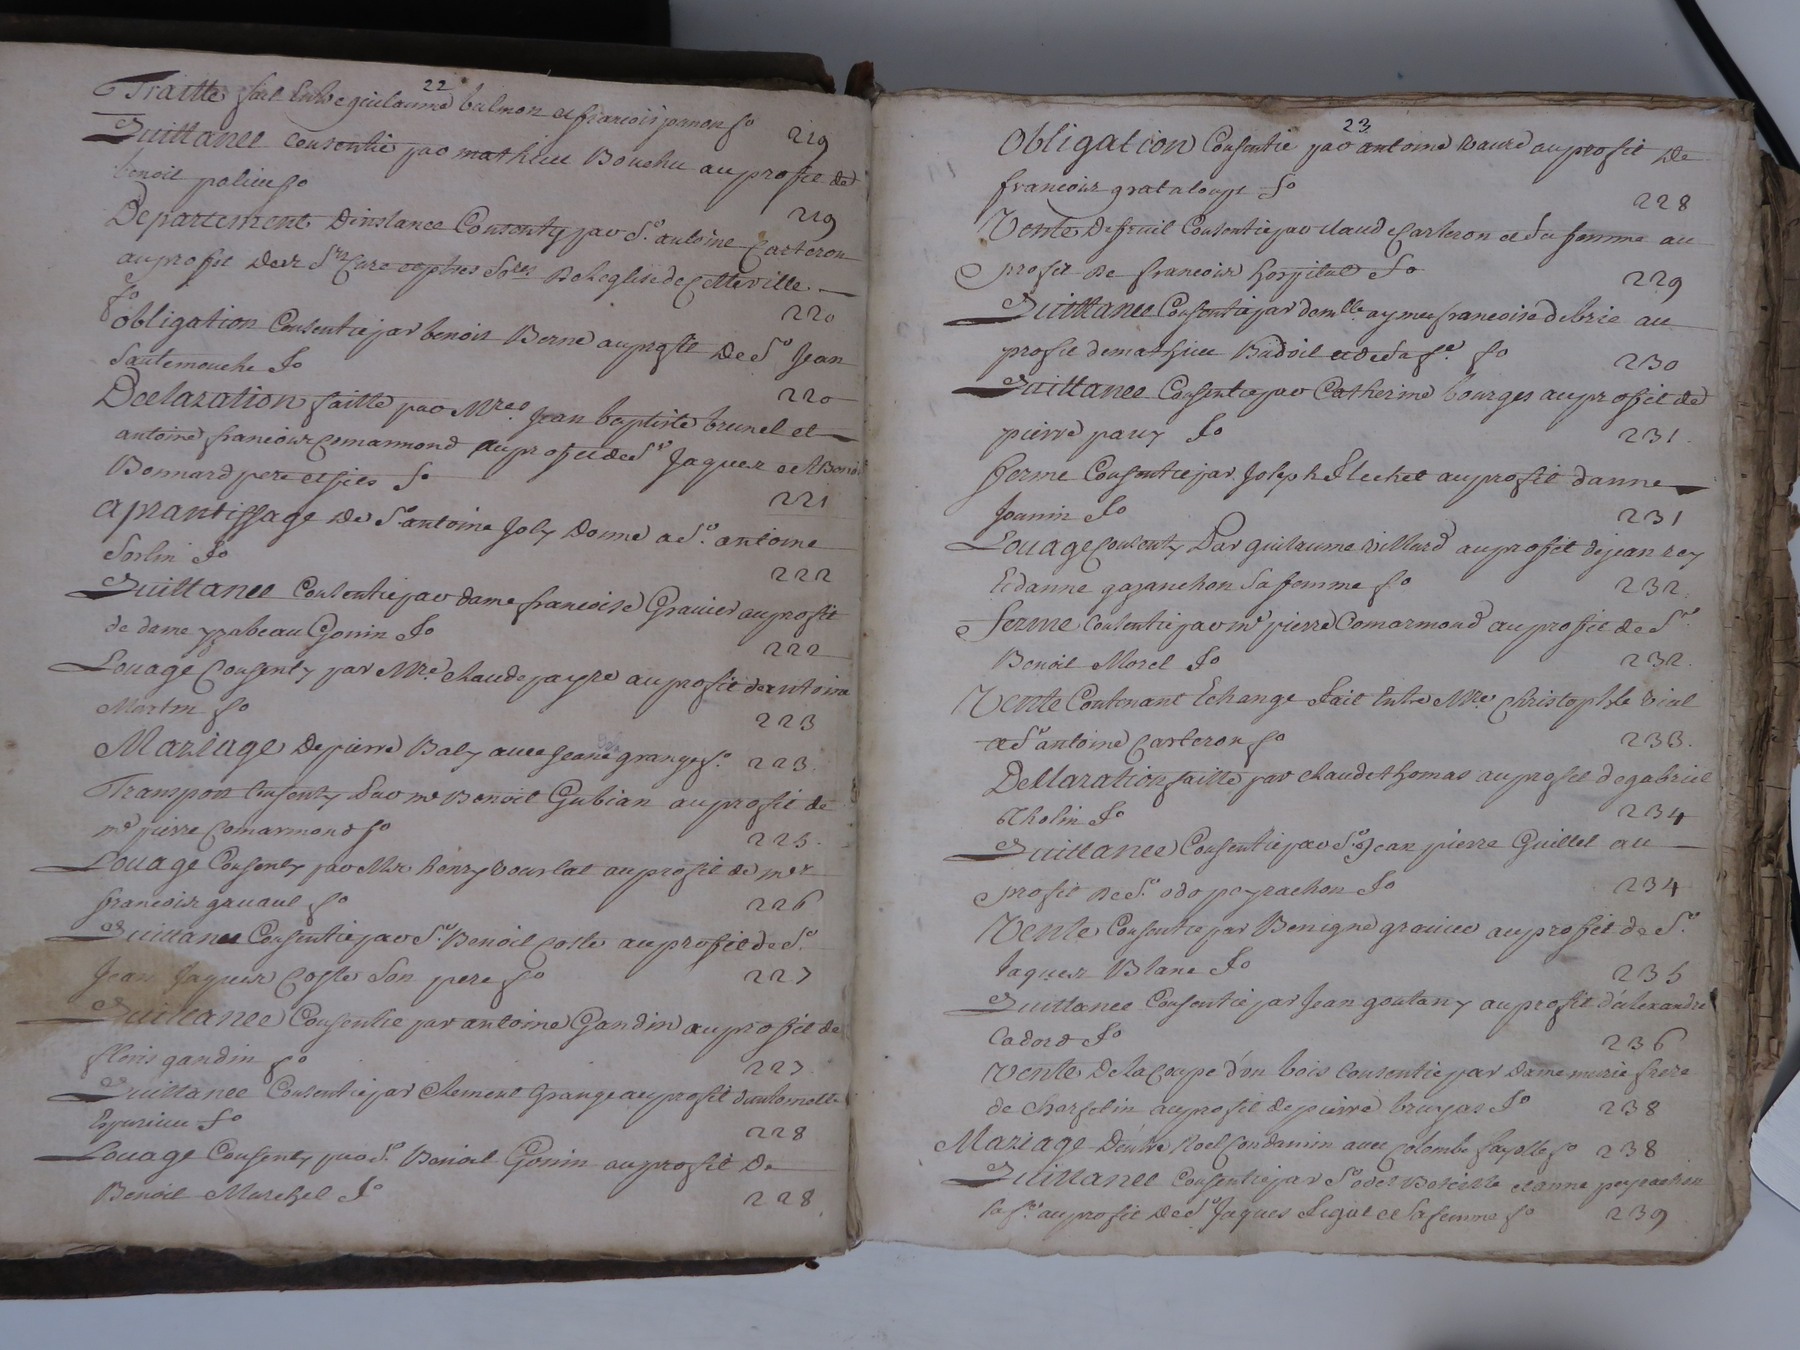 22
Traitté fait Entre guilaume balmon et francois fo 219
Quittance consentie par mathieu Bouchu au profit de
benoit fo 219
Departement Dinstance Consenty par Sr. antoine Carteron
au profit des Srs Curé et De leglise de Cetteville
fo 220
obligation Consentie par benois Berne au profit De Sr Jean
Santemouche fo 220
Declaration faitte par Mres Jean baptiste brunel et
antoine francois Comarmond au profit de Sr Jaques et Benoit
Bonnard pere et fils fo 221
aprantissage De Sr antoine Joly Donné a Sr. antoine
Sorlin fo 222
Quittance Consentie par dame francoise Gravier au profit
de dame yzabeau Gonin fo 222
Louage Consenty par Mre. Claude payre au profit dantoine
Martin fo 223
Mariage De pierre Baly avec Jeane grange fo. 223
Transport Consenty Par me Benoit Gubian au profit de
me pierre Comarmond fo 225
Louage Consenty par Mre henry bourlat au profit de mer
francois gavaul fo 226
Quittance Consentie par Sr Benoit Coste au profit de Sr.
Jean Jaques Coste Son pere fo 227
Quittance Consentie par antoine Gandin au profit de
floris gandin fo 227
Quittance Consentie par Clement Grange au profit
fo 228
Louage Consenty par Sr. Benoit Gonin au profit De
Benoit Marchel fo 228
23
Obligation Consentie par antoine au profit De
francois grataloup fo 228
Vente Consentie par claude Carteron et Sa femme au
profit De francois hospital fo 229
Quittance Consentie par damlle aymée francoise debrie au
profit de mathieu Badoil et de Sa fe. fo 230
Quittance Consentie par Catherine bourges au profit de
pierre pavy fo 231
ferme Consentie par Joseph flechet au profit danne
Jounin fo 231
Louage Consenty Par guilaume villard au profit de jean rey
Et danne gazanchon Sa femme fo 232
ferme Consentie par me pierre Comarmond au profit de Sr
Benoit Morel fo 232
Vente Contenant Echange fait Entre Mre Christophle vial
et Sr antoine Carteron fo 233
Declaration faitte par Claude thomas au profit de gabriel
tholin fo 234
Quittance Consentie par Sr Jean pierre Guillet au
profit De Sr odo peyrachon fo 234
Vente Consentie par Benigne gravier au profit de Sr
Jaques Blanc fo 235
Quittance Consentie par Jean goutany au profit d'alexandre
Cadord fo 236
Vente De la Coupe d'un bois Consentie par Dame marie frere
de Charselin au profit de pierre bruyas fo 238
Mariage D'entre Noel Condamin avec Colombe fayolle fo 238
Quittance Consentie par Sr odet et anne peyrachon
Sa fe au profit De Sr Jaques Legat et Sa femme fo 239